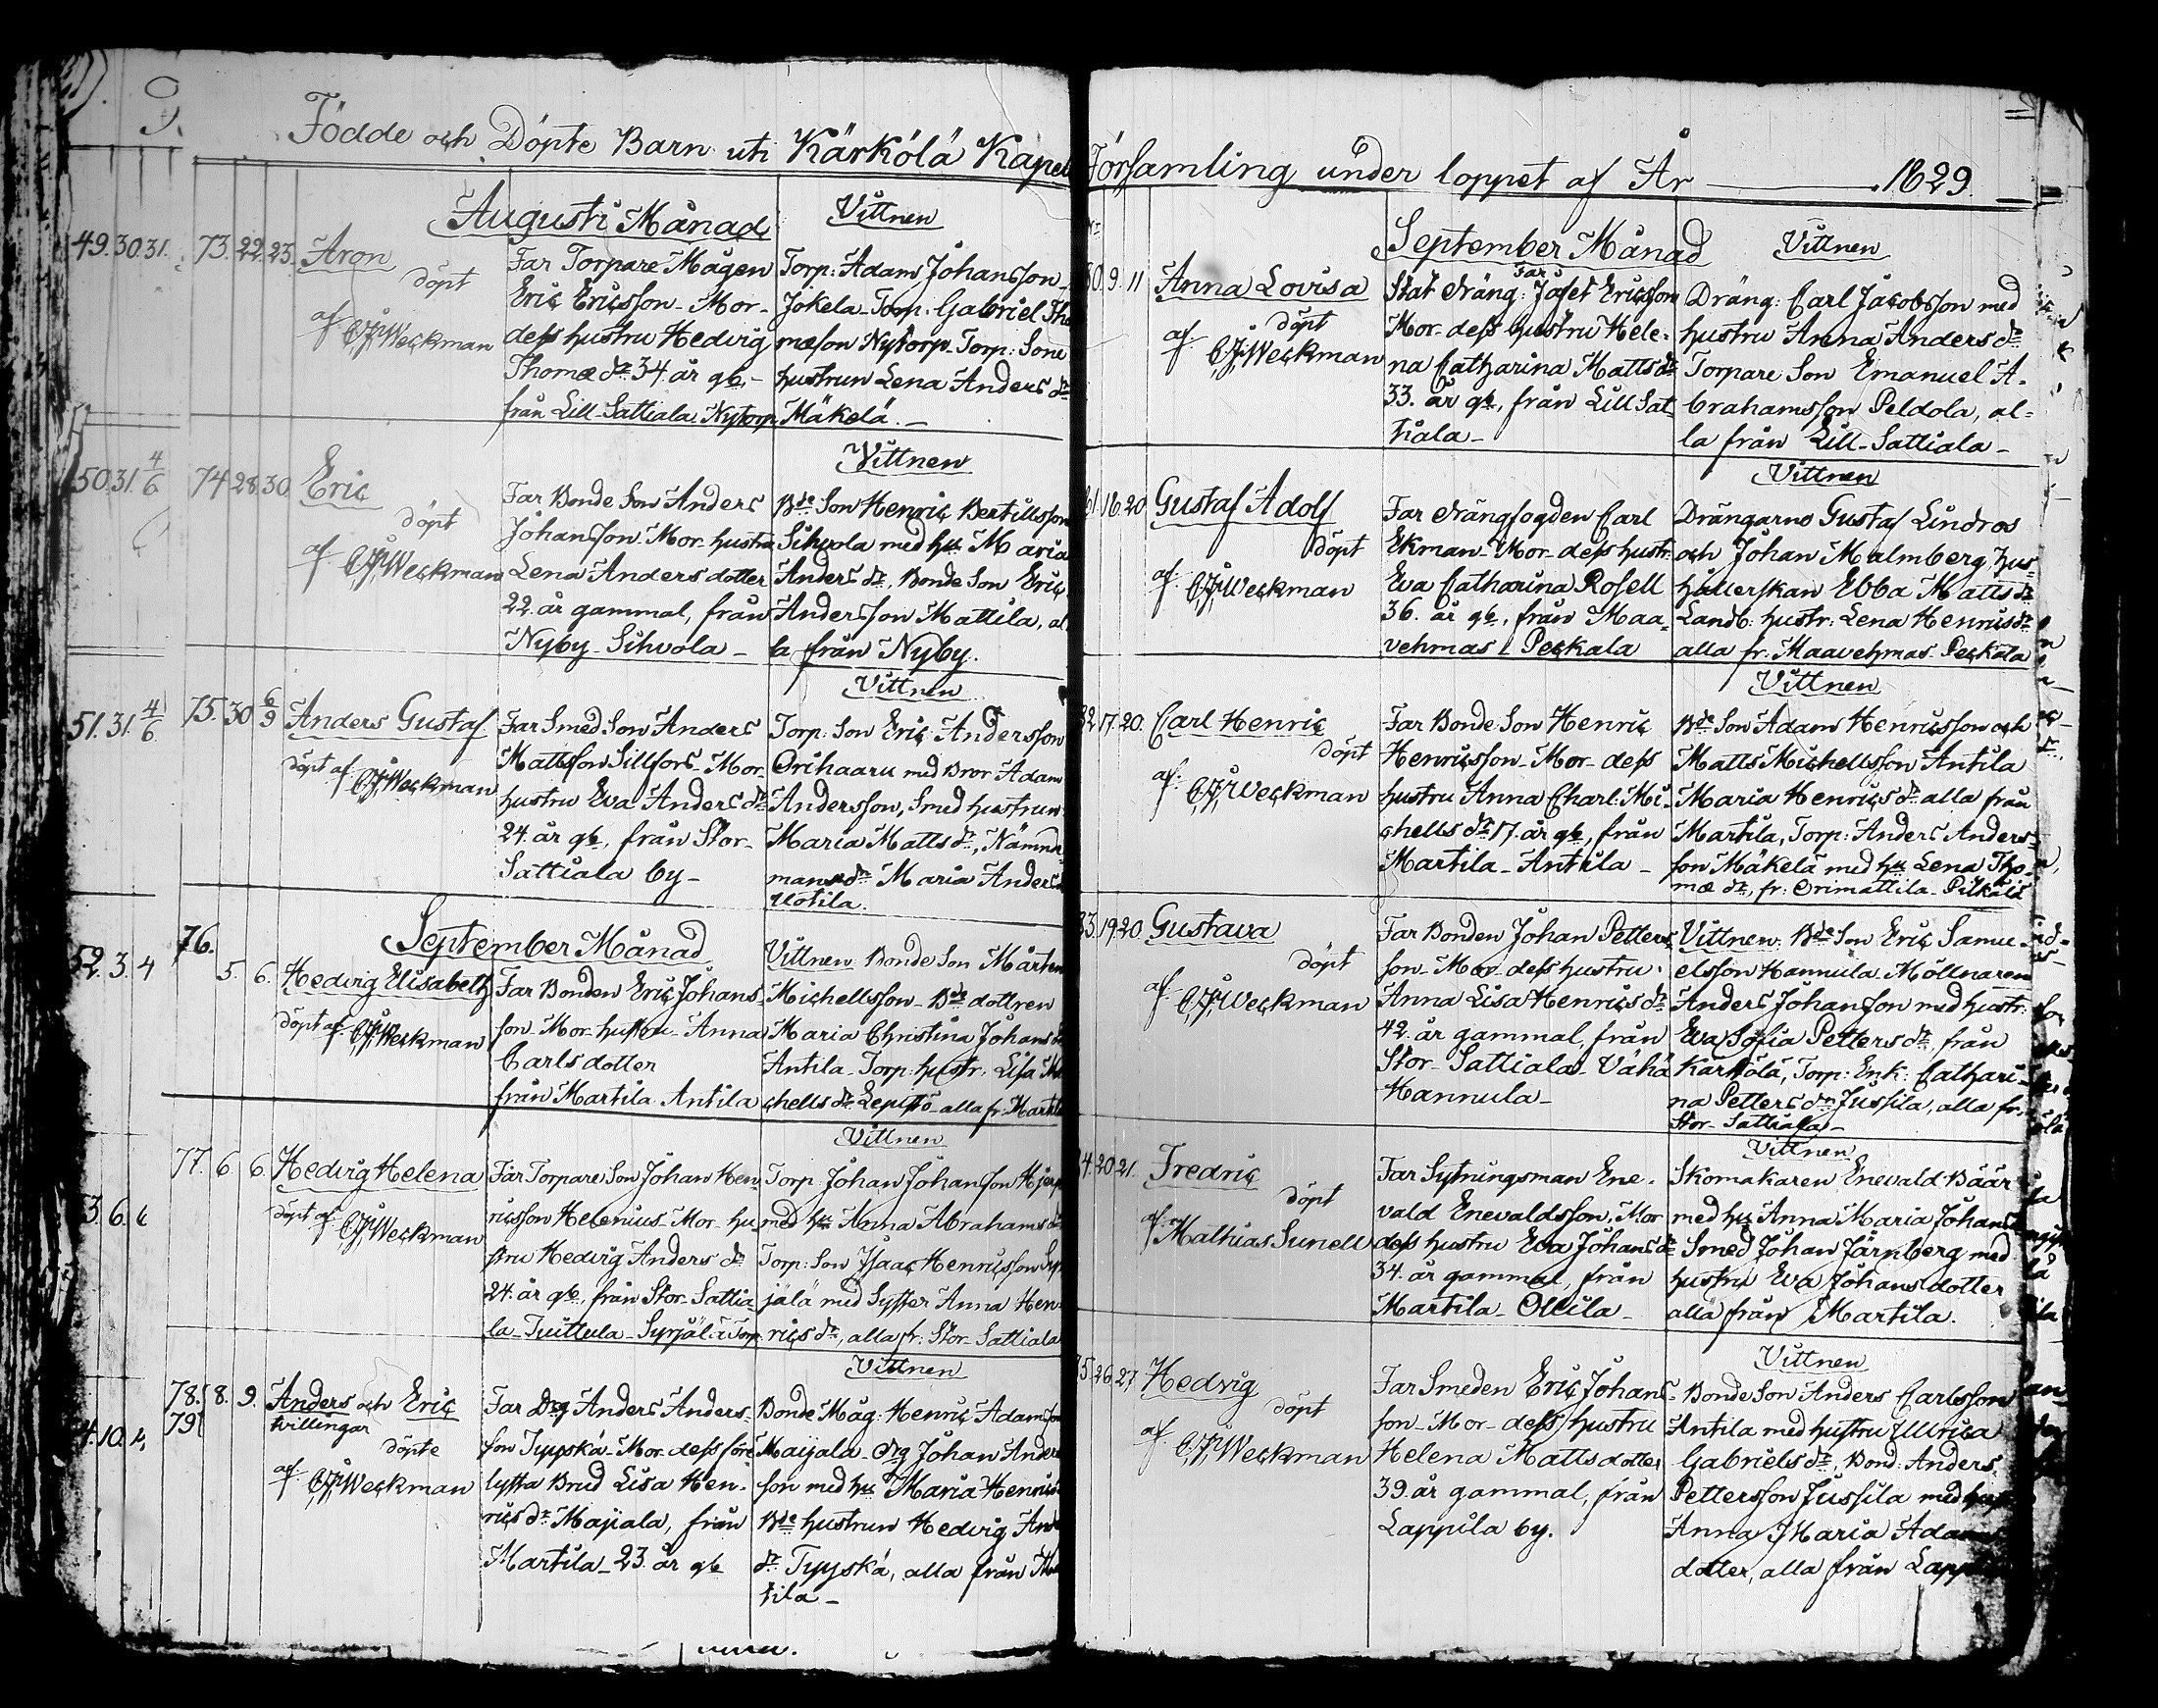 9.
Födde och Döpte Barn uti Kärkölä Kapell
Församling under loppet af År 1829.
Augusti Månad
Vittnen
49. 30. 31.
73. 22. 23. Aron
döpt
af C,J,Weckman
Far Torpare Mågen
Eric Ericsson - Mor -
dess hustru Hedvig
Thomæ dr. 34. år gl. -
från Lill-Sattiala Nytorp
Torp: Adam Johansson
Jokela - Torp: Gabriel Tho
mæson Nytorp - Torp: Sone
hustrun Lena Anders dr
Mäkelä. -
Vittnen
50. 31. 4/6
74 28. 30 Eric
döpt
af C,J,Weckman
Far Bonde Son Anders
Johansson. Mor hustru
Lena Anders dotter
22. år gammal, från
Nyby - Sihvola -
Bde Son Henric Bertillsson
Sihvola med hu Maria
Anders dr, Bonde Son Eric
Andersson Mattila, al
la från Nyby.
Vittnen
51. 31. 4/6
75. 30 6/9 Anders Gustaf
döpt af C,J,Weckman
Far Smed Son Anders
Mattsson Sillfors - Mor
hustru Eva Anders dr
24. år gl, från Stor-
Sattiala by -
Torp: Son Eric Andersson
Orihaaru med Bror Adam
Andersson, Smed hustrun
Maria Matts dr, Nämnde
mans dr Maria Anders
Uotila.
September Månad
52. 3. 4
76.
5. 6. Hedvig Elisabeth
döpt af C,J,Weckman
Far Bonden Eric Johans
son - Mor hustru - Anna
Carlsdotter
från Martila Antila
Vittnen Bonde Son Mårten
Michellsson - Bde dottren
Maria Christina Johans
Antila - Torp: hustr: Lisa Mi
chells dr Lepistö - alla fr: Martila
Vittnen
3. 6. 6
77. 6. 6 Hedvig Helena
döpt af C,J,Weckman
Far Torpare Son Johan Hen-
ricsson Helenius - Mor - hu
stru Hedvig Anders dr
24. år gl, från Stor-Sattia
la - Tuittula - Syrjälä Torp
Torp: Johan Johansson Hjerp
med hu Anna Abrahams dr
Torp: Son Isaac Henricsson Syr
jälä med Syster Anna Hen-
rics dr, alla fr: Stor-Sattiala
Vittnen
4. 10. 4
78. 8. 9. Anders och Eric
79
tvillingar
döpte
af C,J,Weckman
Far Drg Anders Anders-
son Tyyskä - Mor dess före
lysta Brud Lisa Hen-
rics dr Maijala, från
Martila - 23. år gl
Bonde Måg: Henric Adamsson
Maijala - Drg Johan Anders
son med hu Maria Henrics
Bde hustrun Hedvig And
dr Tyyskä, alla från Mar
tila -
September Månad
Vittnen
80. 9. 11 Anna Lovisa
döpt
af C,J,Weckman
Far
Stat Dräng: Jafet Ericsson
Mor - dess hustru Hele-
na Catharina Matts dr
33. år gl, från Lill Sat-
tiala -
Dräng: Carl Jacobsson med
hustru Anna Anders dr
Torpare Son Emanuel A-
brahamsson Peldola, al-
la från Lill-Sattiala -
Vittnen
81. 16. 20. Gustaf Adolf
döpt
af C,J,Weckman
Far Drängfogden Carl
Ekman - Mor - dess hustr:
Eva Catharina Rosell
36. år gl, från Maa-
vehmas Peckala
Drängarne Gustaf Lindros
och Johan Malmberg, hus-
hållerskan Ebba Matts dr
Landb: hustr: Lena Henrics dr
alla fr: Maavehmas Peckala
Vittnen
82. 17. 20. Carl Henric
döpt
af C,J,Weckman
Far Bonde Son Henric
Henricsson - Mor - dess
hustru Anna Charl: Mi-
chells dr 17. år gl, från
Martila - Antila -
Bde Son Adam Henricsson och
Matts Michellsson Antila
Maria Henrics dr alla från
Martila, Torp: Anders Anders-
son Mäkelä med hu Lena Tho-
mæ dr, fr: Orimattila - Pitkälä
83. 19. 20 Gustava
döpt
af C,J,Weckman
Far Bonden Johan Petters
son - Mor - dess hustru
Anna Lisa Henrics dr
42. år gammal, från
Stor-Sattiala - Vähä
Hannula -
Vittnen: Bde Son Eric Samu-
elsson Hannula - Möllnaren
Anders Johansson med hustr:
Eva Sofia Petters dr, från
Kärkölä, Torp: Enk: Cathari-
na Petters dr Jussila, alla fr.
Stor-Sattiala -
Vittnen
84. 20. 21. Fredric
döpt
af Mathias Sunell
Far Sytningsman Ene-
vald Enevaldsson, Mor
dess hustru Eva Johans dr
34. år gammal, från
Martila - Ollila -
Skomakaren Enevald Bäär
med hu Anna Maria Johans
Smed Johan Järnberg med
hustru Eva Johansdotter
alla från Martila.
Vittnen
85. 26. 27 Hedvig
döpt
af C,J,Weckman
Far Smeden Eric Johans-
son - Mor - dess hustru
Helena Matts dotter
39. år gammal, från
Lappila by.
Bonde Son Anders Carlsson
Antila med hustru Ullrica
Gabriels dr, Bond: Anders
Pettersson Jussila med
Anna Maria Adams
dotter, alla från Lapp